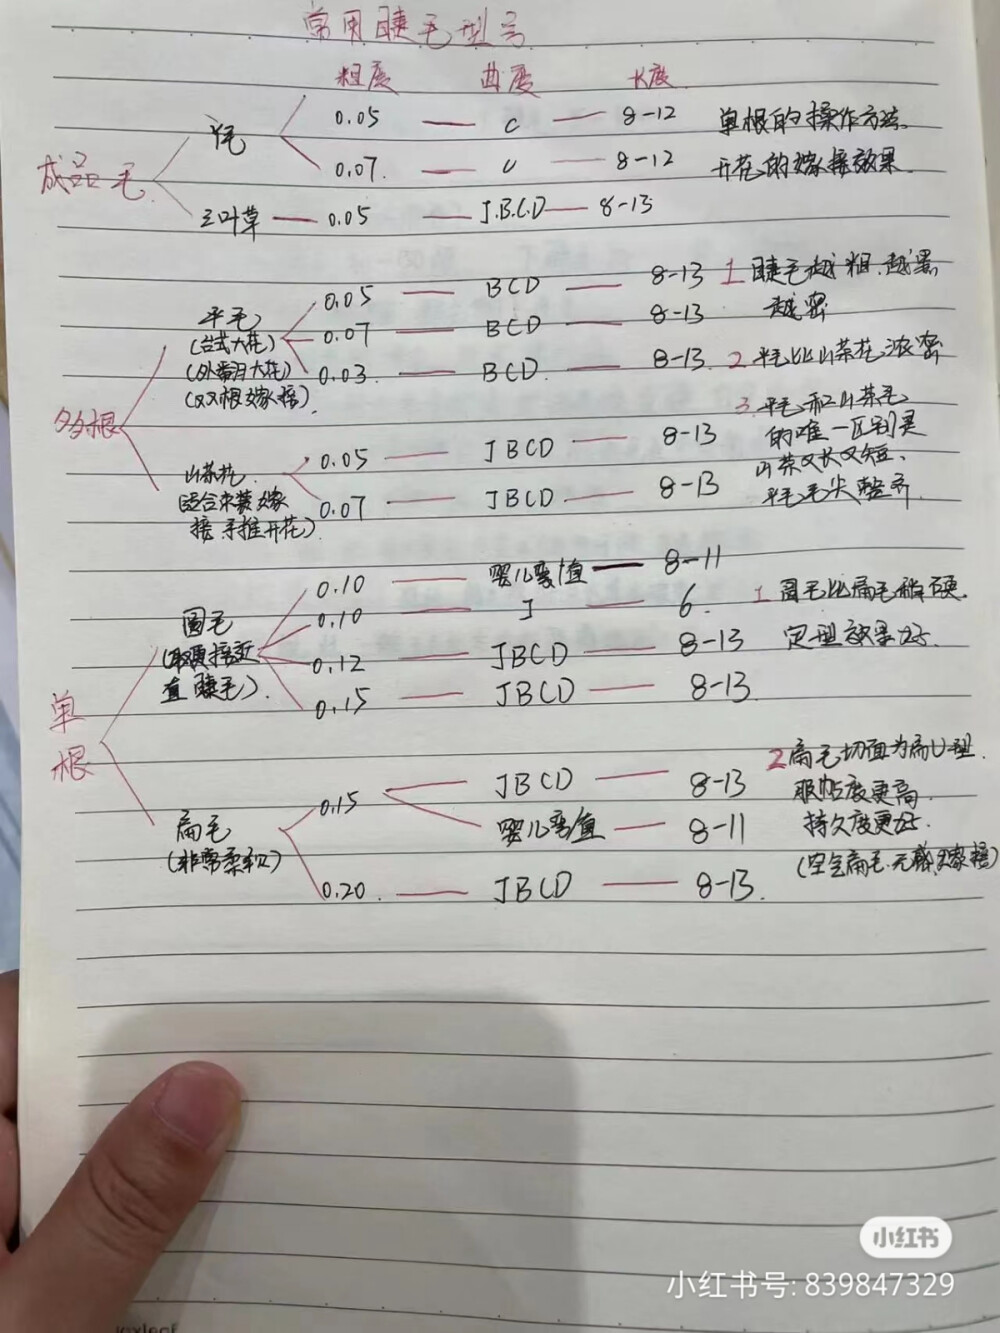 常用睫毛型号
粗度 曲度 长度
成品毛
Y毛 0.05 — C — 8-12 单根的操作方法.
0.07. — U — 8-12 开花的嫁接效果.
三叶草 — 0.05 — J.B.C.D — 8-13
多根
平毛 0.05 — BCD — 8-13 1 睫毛越粗.越黑
(台式大花) 0.07 — BCD — 8-13 越密
(外翻大花) 0.03. — BCD. — 8-13. 2. 平毛比山茶花浓密
(双根嫁接).
3. 平毛和山茶毛
的唯一区别是
山茶又长又短、
平毛毛尖整齐.
山茶花. 0.05 — JBCD — 8-13
(适合束装嫁 0.07 — JBCD — 8-13
接.手推开花)
单根
0.10 — 婴儿弯/直 — 8-11
圆毛 0.10 — J — 6. 1. 圆毛比扁毛稍硬.
0.12 — JBCD — 8-13 定型效果好.
直睫毛). 0.15 — JBCD — 8-13
扁毛 0.15 — JBCD — 8-13 2 扁毛切面为扁U型.
服帖度更高.
(非常柔软) 婴儿弯/直 — 8-11 持久度更好.
(空气扁毛.无感嫁接)
0.20. — JBCD — 8-13.
小红书
小红书号: 839847329